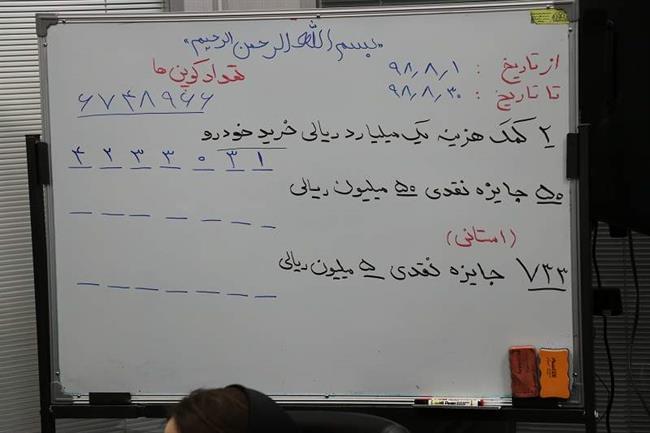 بسم الله الرحمن الرحیم
از تاریخ : ۹۸٫۸٫۱
تا تاریخ : ۹۸٫۸٫۳۰
تعداد کوپن ها
۶۷۴۸۹۶۶
۲ کمک هزینه یک میلیارد ریالی خرید خودرو
۴ ۲ ۳ ۳ ۰ ۳ ۱
۵۰ جایزه نقدی ۵۰ میلیون ریالی
(استانی)
۷۴۳ جایزه نقدی ۵ میلیون ریالی